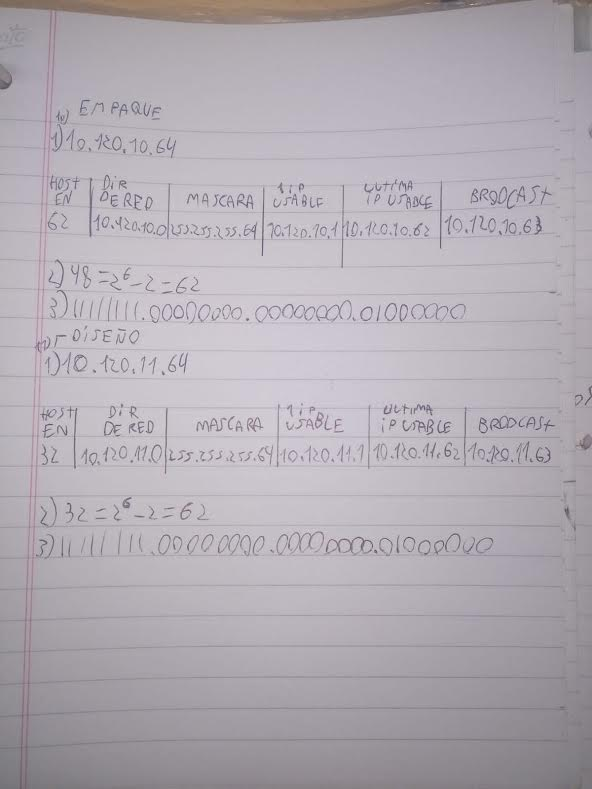 10) EMPAQUE
1) 10.120.10.64
HOST EN | DIR DE RED | MASCARA | 1 iP USABLE | ULTIMA iP USABLE | BRODCAST
62 | 10.120.10.0 | 255.255.255.64 | 10.120.10.1 | 10.120.10.62 | 10.120.10.63
2) 48 = 2^6 - 2 = 62
3) 11111111.00000000.00000000.01000000
DISEÑO
1) 10.120.11.64
HOST EN | DIR DE RED | MASCARA | 1 iP USABLE | ULTIMA iP USABLE | BRODCAST
32 | 10.120.11.0 | 255.255.255.64 | 10.120.11.1 | 10.120.11.62 | 10.120.11.63
2) 32 = 2^6 - 2 = 62
3) 11111111.00000000.00000000.01000000